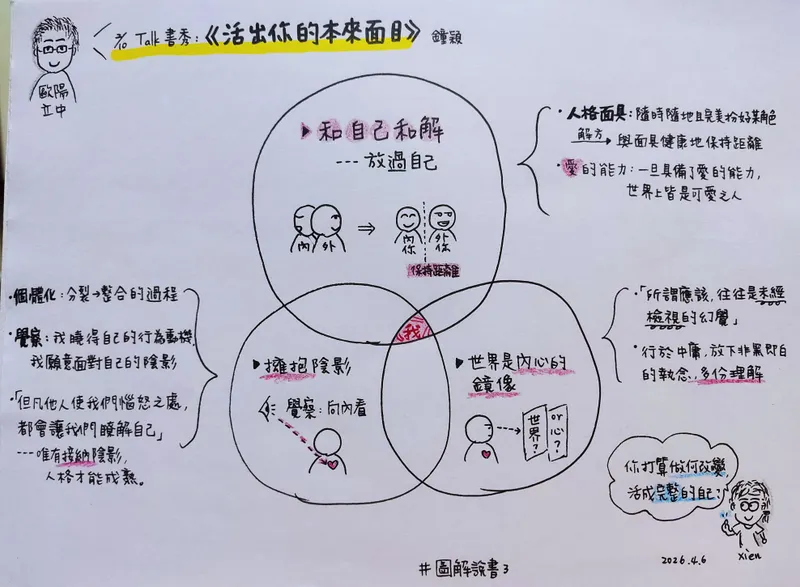 4/10 Talk書秀:《活出你的本來面目》 鐘穎
歐陽
立中
▶ 和自己和解
--- 放過自己
內 外 ⇒ 內你 外你
保持距離
・人格面具:隨時隨地且完美扮好某角色
解方→ 與面具健康地保持距離
・愛的能力:一旦具備了愛的能力,
世界上皆是可愛之人
・個體化:分裂→整合的過程
・覺察:我曉得自己的行為動機,
我願意面對自己的陰影
・「但凡他人使我們惱怒之處,
都會讓我們瞭解自己」
---唯有接納陰影,
人格才能成熟。
▶擁抱陰影
覺察:向內看
我
▶世界是內心的
鏡像
世界? or 心?
・「所謂應該,往往是未經
檢視的幻覺」
・行於中庸,放下非黑即白
的執念,多份理解
你打算做何改變,
活成完整的自己?
xien
2026.4.6
#圖解說書3